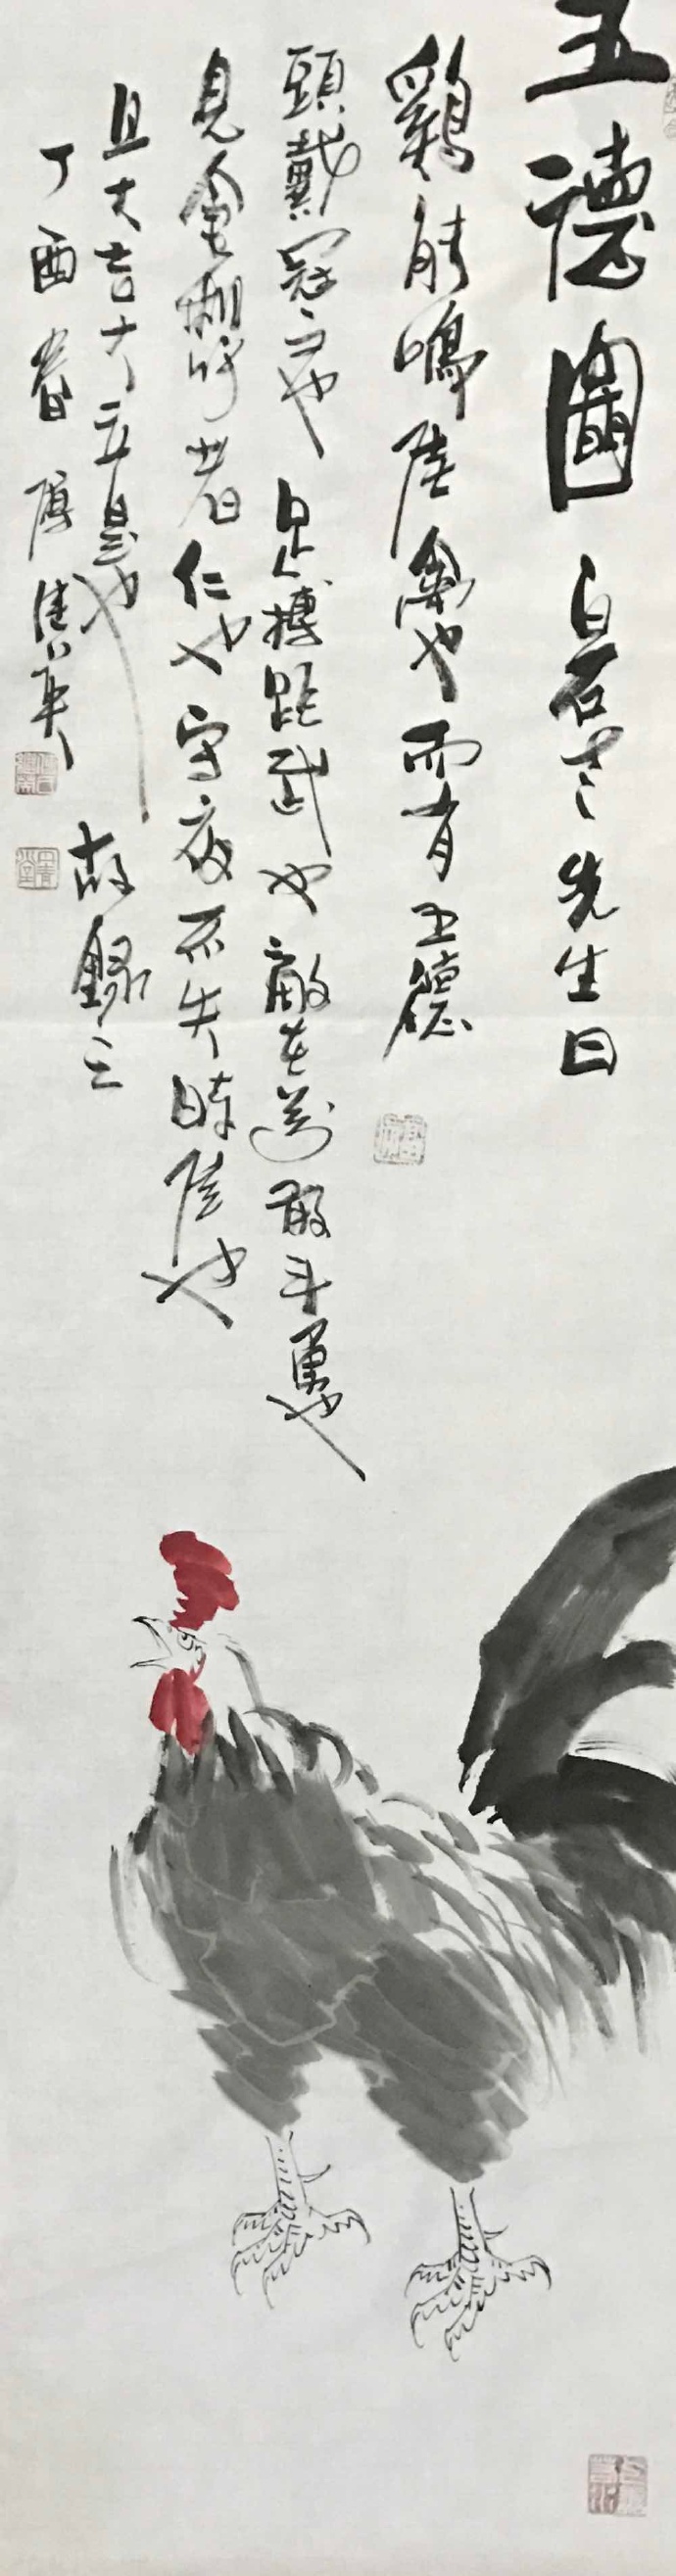 五德圖 白石老先生曰
鷄能鳴信禽也而有五德
頭戴冠文也 足搏距武也敵在前敢斗勇也
見食相呼者仁也守夜不失時信也
且大吉大 也 故錄之
丁酉春